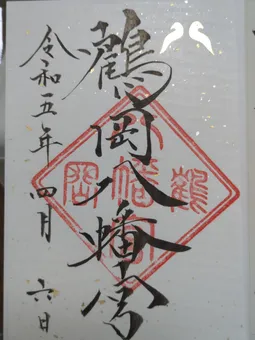 鶴岡八幡宮
令和五年四月六日
鶴岡
八幡宮